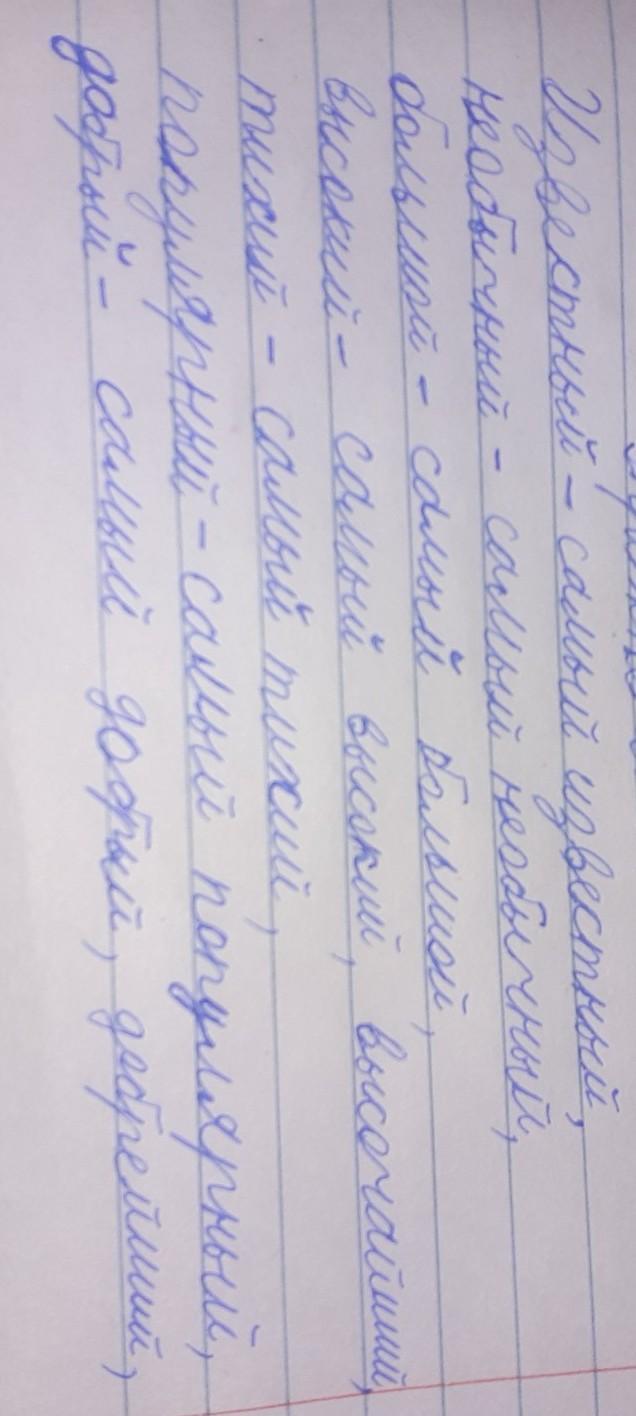 Известный - самый известный,
необычный - самый необычный,
большой - самый большой,
высокий - самый высокий, высочайший,
тихий - самый тихий,
популярный - самый популярный,
добрый - самый добрый, добрейший,